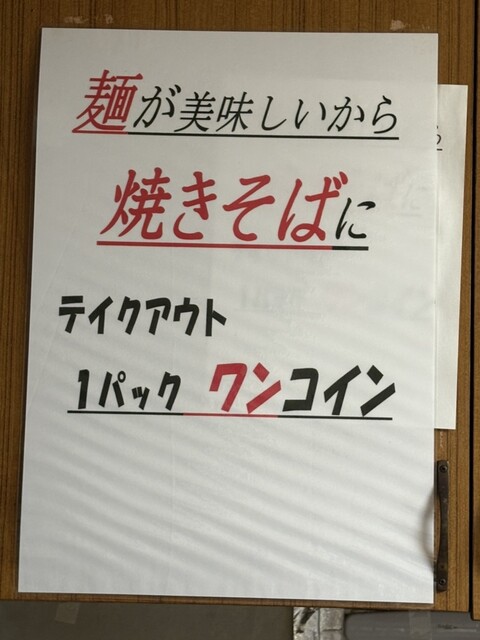 麺が美味しいから
焼きそばに
テイクアウト
1パック ワンコイン
ら